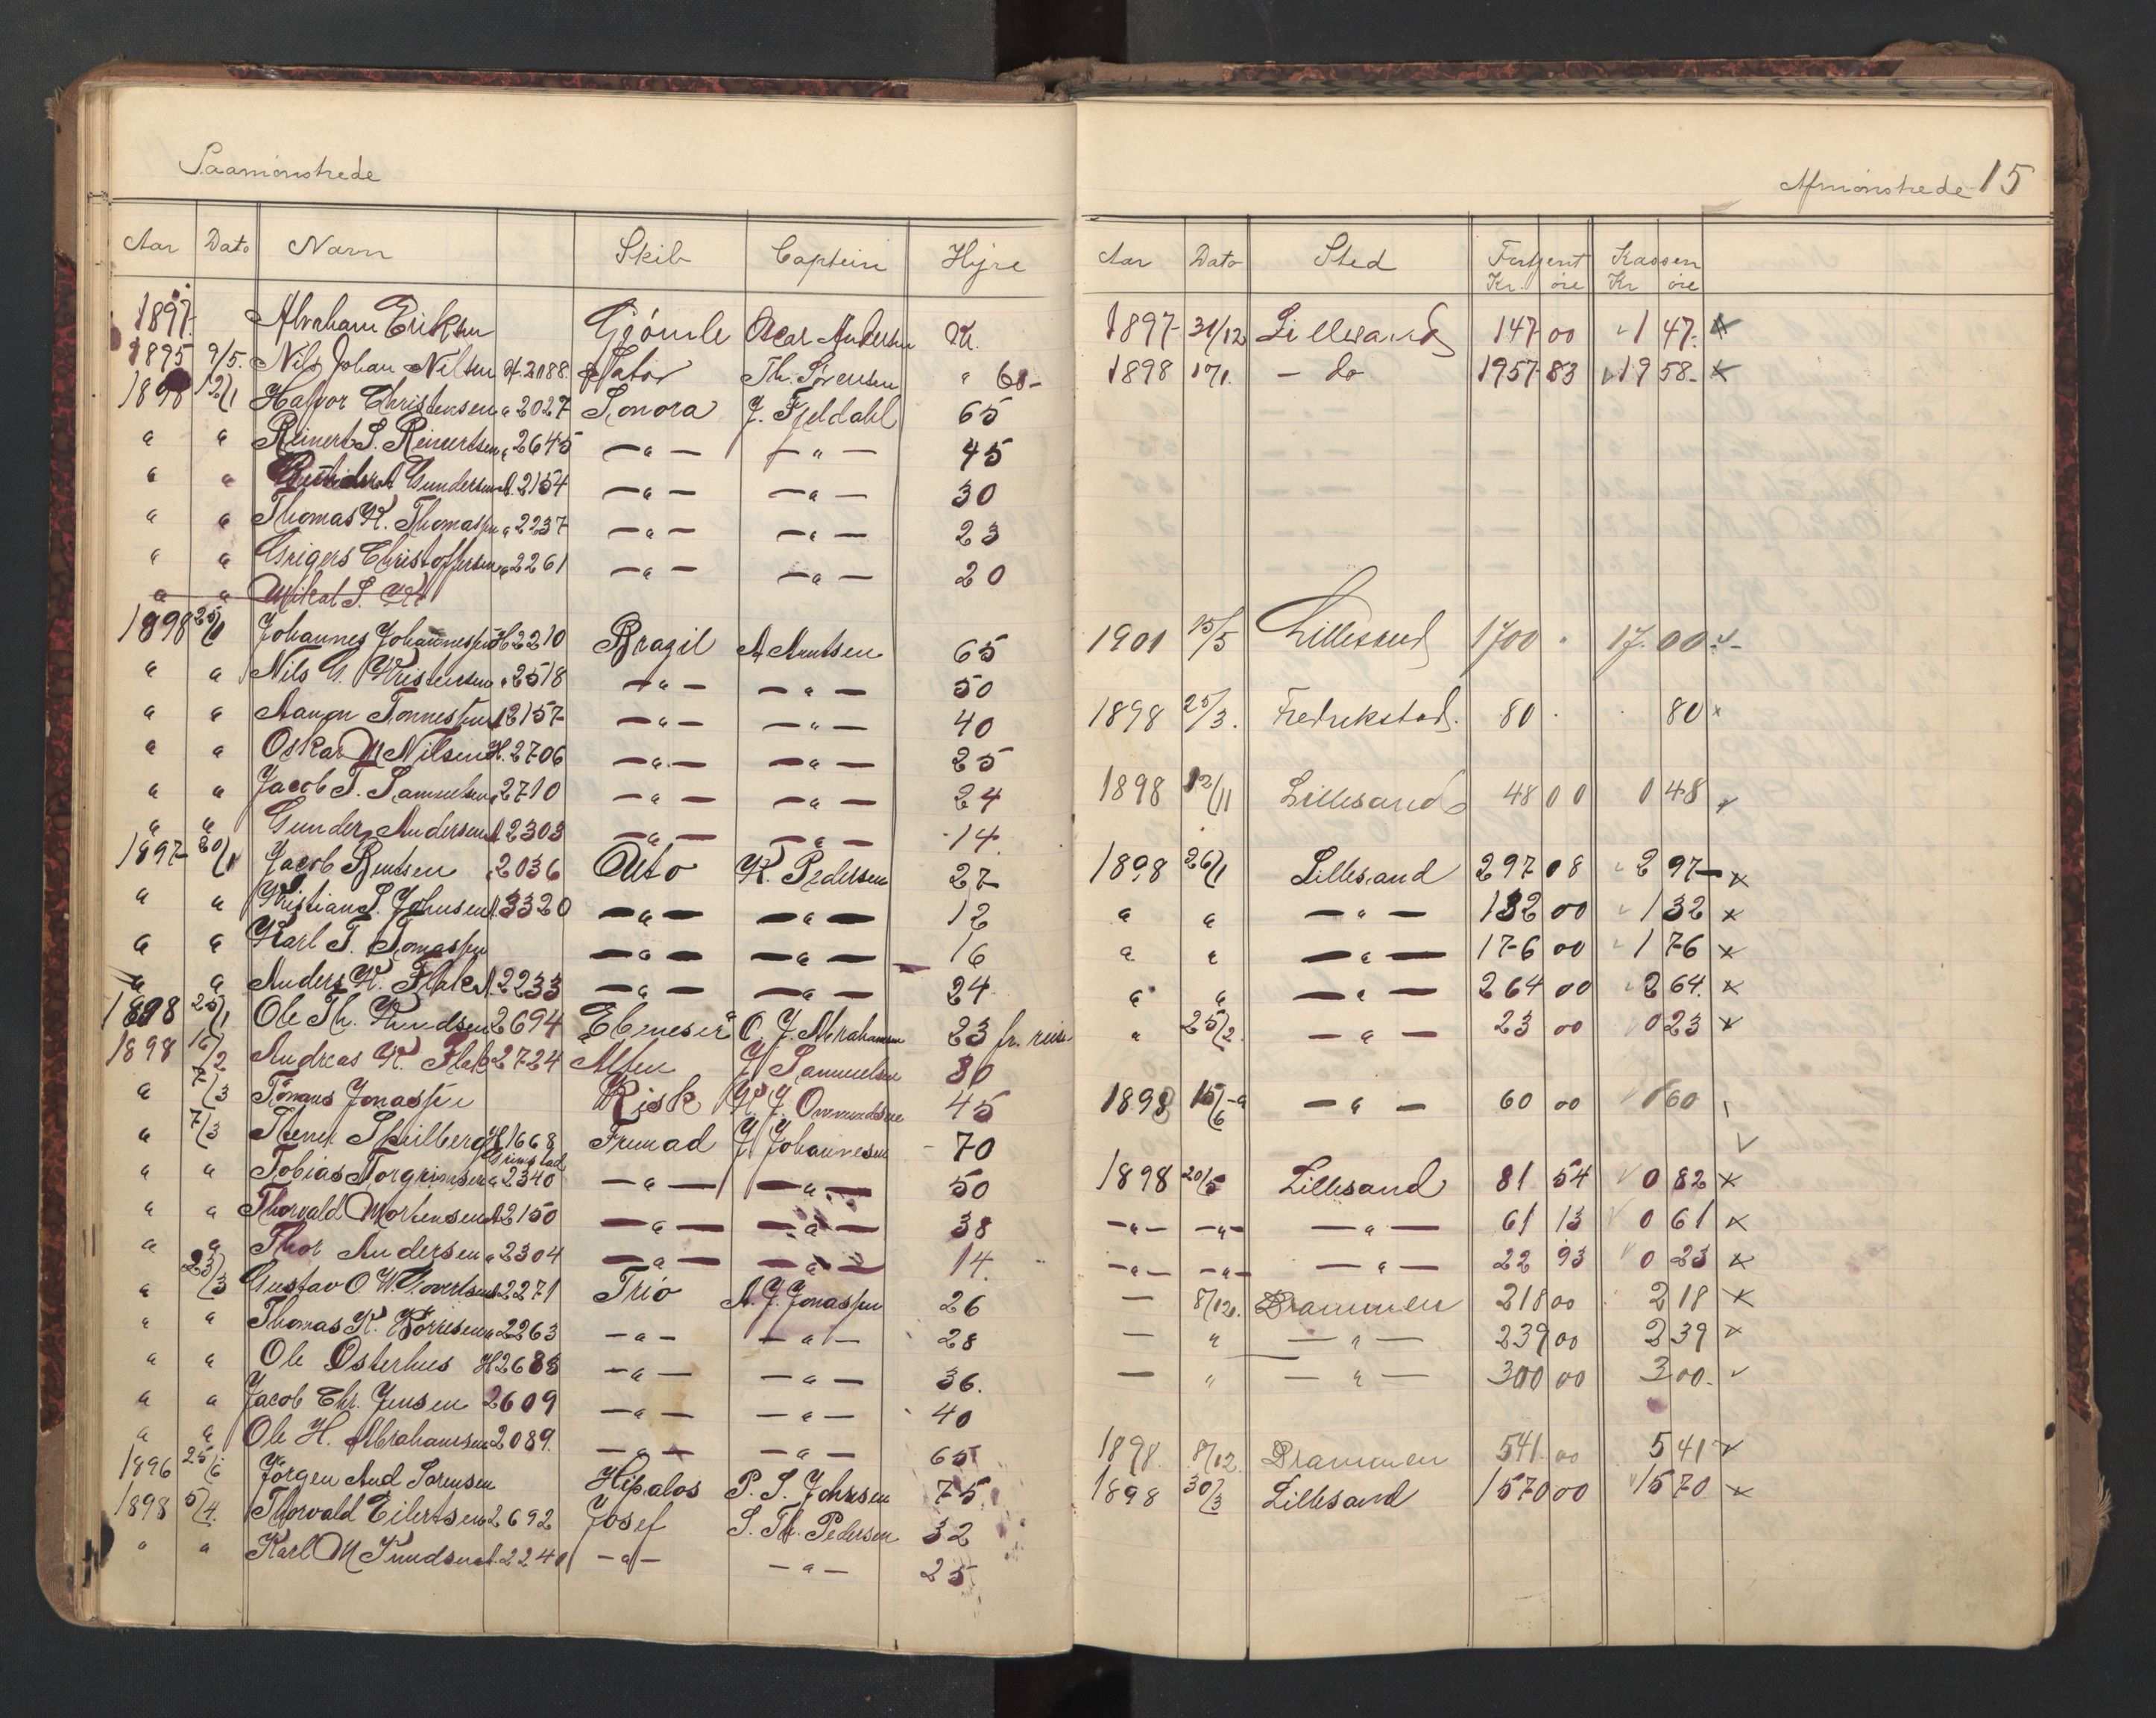 Paamönstrede
Afmönstrede 15
Aar Dato Navn Skib Captein Hyre Aar Dato Sted Fortjent Kr. öre Kassen Kr öre
1897 Abraham Eriksen Gjömle Oscar Andersen Kr. 1897 31/12 Lillesand 147 00 147 x
1895 9/5. Nils Johan Nilsen H. 2188. Th. Sörensen " 60- 1898 17/1. - do 1957 83 1958- x
1898 12/1 Halvor Christensen " 2027 Sonora J. Fjeldahl 65
" " Reinert S. Reinertsen " 2645 -"- -"- 45
" " Gundersen A. 2154 -"- -"- 30
" " Thomas K. Thomassen " 2237 -"- -"- 23
" " Grigers Christoffersen " 2261 -"- -"- 20
" " Mikal S.
1898 25/1 Johannes Johannessen H 2210 Brazil A Arntsen 65 1901 15/5 Lillesand 1700 " 17.00
" " Nils G. Kristensen " 2518 -"- -"- 50
" " Aanon Tönnessen A 2157 -"- -"- 40 1898 25/3. Fredrikstad. 80 . 80 x
" " Oskar M Nilsen H. 2706 -"- -"- 25
" " Jacob T. Samuelsen " 2710 -"- -"- 24 1898 12/11 Lillesand 48 00 048
" " Gunder Andersen A 2303 -"- -"- 14
1897 20/11 Jacob Bentsen 2036 Otto K. Pedersen 27 1898 26/1 Lillesand 297 08 297- x
" " Kristian S. Johnsen A. 3320 -"- -"- 12 " " -"- 132 00 132 x
" " Karl T. Tomassen -"- -"- 16 " " -"- 176 00 176 x
" " Anders K. Flak A. 2233 -"- -"- 24 " " -"- 264 00 264. x
1898 25/1 Ole Th. Knudsen 2694 Ebeneser O. J. Abrahamsen 23 fr. reise " 25/2. -"- 23 00 023 x
1898 16/2 Andreas K. Flak 2724 Alfen J Samuelsen 80
" 7/3 Tomas Jonassen Risk K J Ommundsen 45 1898 15/6 -"- 60 00 060
" 7/3 H 1668 Fremad J Johannesen - 70
" " Tobias Torgrimsen Grimstad " 2340 -"- -"- 50 1898 20/5 Lillesand 81 54 082 x
" " Thorvald Mortensen A 2150 -"- -"- 38 -"- -"- -"- 61 13 061 x
" " Thor Andersen " 2304 -"- -"- 14. -"- -"- -"- 22 93 023 x
" 23/3 Gustav O. W. Govertsen A 2271 Trio A. J. Jonassen 26 - 8/12. Drammen 218 00 218 x
" " Thomas K. " 2263 -"- -"- 28 - " -"- 239 00 239 x
" " Ole Osterhus H 2688 -"- -"- 36. - " -"- 300 00 300.
" " Jacob Chr. Jensen 2609 -"- -"- 40
" " Ole H. Abrahamsen 2089. -"- -"- 65 1898. 8/12. Drammen 541 00 541
1896 25/6 Jörgen And Sörensen Hipalos P. S. Johnsen 75. 1898 30/3 Lillesand 1570 00 1570 x
1898 5/4. Thorvald Eilertsen 2692 Josef S. Th. Pedersen 32
" " Karl M Knudsen A. 2240 -"- -"- 25